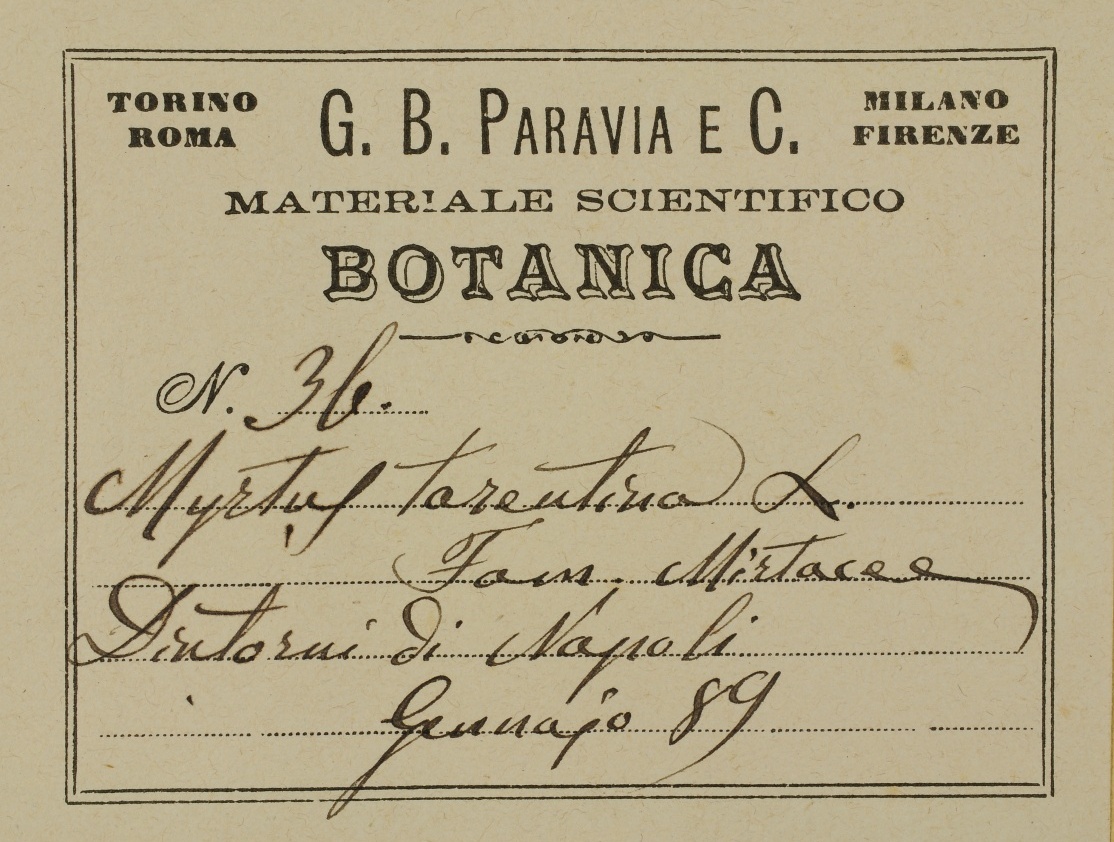 TORINO ROMA G. B. PARAVIA E C. MILANO FIRENZE
MATERIALE SCIENTIFICO
BOTANICA
N. 36.
Myrtus tarentina L.
Fam. Mirtacee
Dintorni di Napoli
Gennajo 89